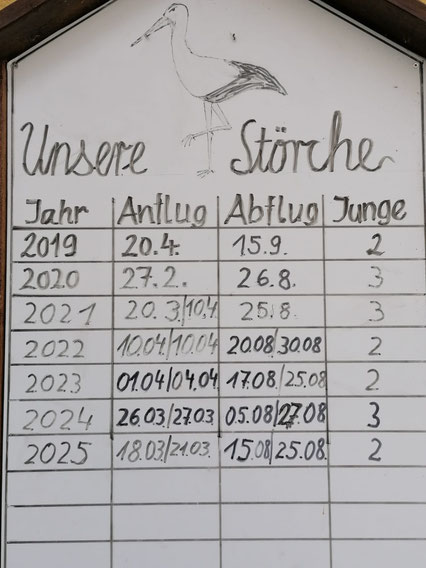 Unsere Störche
Jahr Anflug Abflug Junge
2019 20.4. 15.9. 2
2020 27.2. 26.8. 3
2021 20.3/10.4 25.8. 3
2022 10.04/10.04 20.08/30.08 2
2023 01.04/04.04 17.08./25.08 2
2024 26.03/27.03 05.08/27.08 3
2025 18.03./21.03. 15.08/25.08. 2